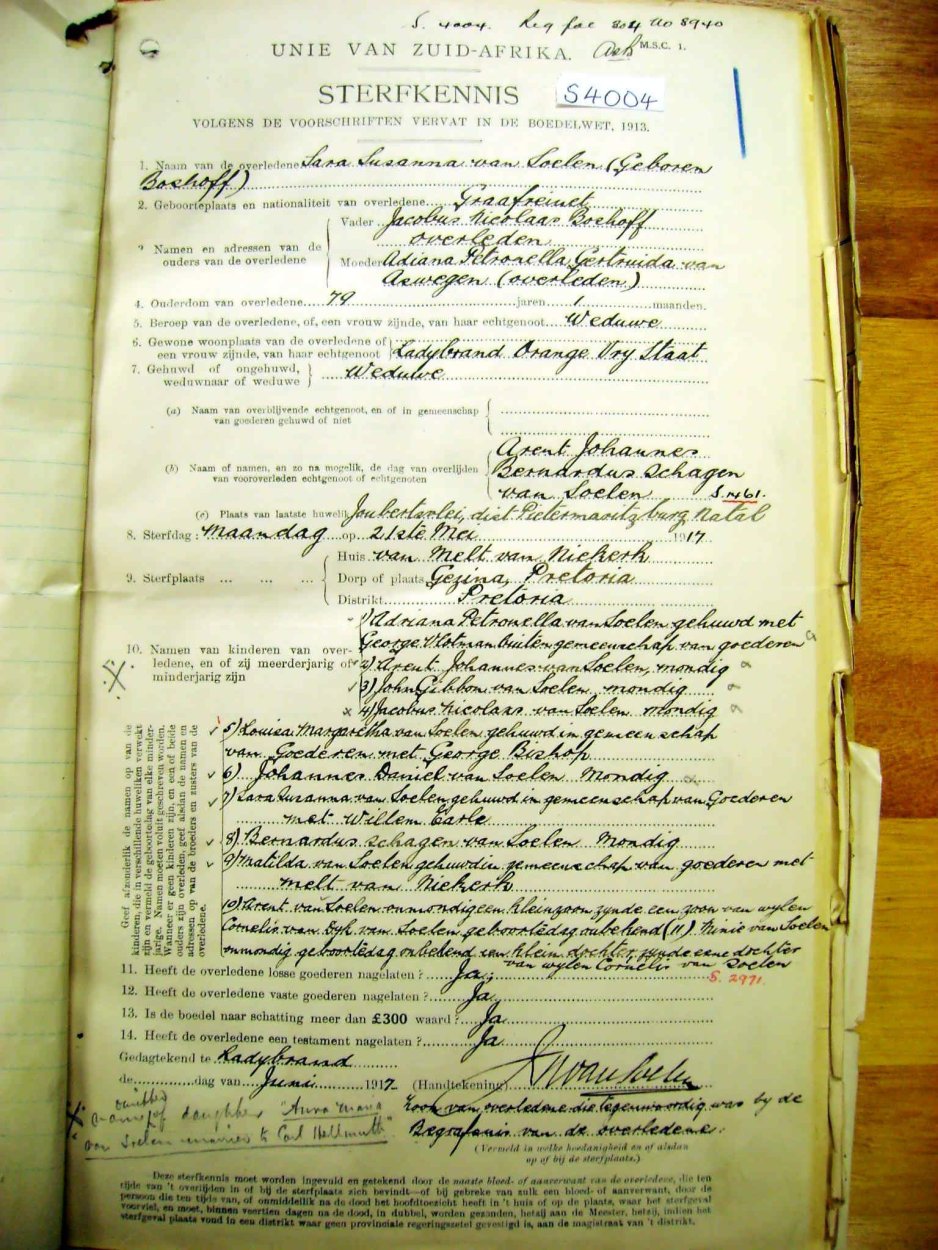 S. 4004. Reg fol 804 No 8940
UNIE VAN ZUID-AFRIKA. M.S.C. 1.
STERFKENNIS S4004
VOLGENS DE VOORSCHRIFTEN VERVAT IN DE BOEDELWET, 1913.
1. Naam van de overledene Sara Susanna van Soelen (Geboren
Boshoff)
2. Geboorteplaats en nationaliteit van overledene Graafreinet
3 Namen en adressen van de ouders van de overledene
Vader Jacobus Nicolaas Boshoff
overleden
Moeder Adiana Petronella Gertruida van
Aswegen (overleden)
4. Ouderdom van overledene 79 jaren 1 maanden.
5. Beroep van de overledene, of, een vrouw zijnde, van haar echtgenoot Weduwe
6. Gewone woonplaats van de overledene of
een vrouw zijnde, van haar echtgenoot Ladybrand Orange Vry Staat
7. Gehuwd of ongehuwd,
weduwnaar of weduwe Weduwe
(a) Naam van overblijvende echtgenoot, en of in gemeenschap
van goederen gehuwd of niet
(b) Naam of namen, en zo na mogelik, de dag van overlijden
van vooroverleden echtgenoot of echtgenoten
Arent Johannes
Bernardus Schagen
van Soelen S. 1461.
(c) Plaats van laatste huwelik Joubertsvlei, dist Pietermaritzburg Natal
8. Sterfdag: Maandag op 21ste Mei 1917
9. Sterfplaats ... ... ...
Huis van Melt van Niekerk
Dorp of plaats Gezina, Pretoria
Distrikt Pretoria
10. Namen van kinderen van over-
ledene, en of zij meerderjarig of
minderjarig zijn
1) Adriana Petronella van Soelen gehuwd met
George Vlotman buiten gemeenschap van goederen
2) Arent Johannes van Soelen, mondig
3) John Gibbon van Soelen mondig
4) Jacobus Nicolaas van Soelen mondig
Geef afzonderlik de namen op van de
kinderen, die in verschillende huweliken verwekt
zijn en vermeld de geboortedag van elke minder-
jarige. Namen moeten voluit geschreven worden.
Wanneer er geen kinderen zijn, en een of beide
ouders zijn overleden, geef alsdan de namen en
adressen op van de broeders en zusters van de
overledene.
5) Louisa Margaretha van Soelen gehuwd in gemeenschap
van Goederen met George Bishop
6) Johannes Daniel van Soelen Mondig
7) Sara Susanna van Soelen gehuwd in gemeenschap van Goederen
met Willem Earle
8) Bernardus Schagen van Soelen Mondig
9) Matilda van Soelen gehuwd in gemeenschap van goederen met
Melt van Niekerk
10) Arent van Soelen onmondig een kleinzoon zynde een zoon van wylen
Cornelis van Dyk van Soelen geboortedag onbekend (11) Minie van Soelen
onmondig geboortedag onbekend een klein dochter, zynde eene dochter
van wylen Cornelis van Soelen
S. 2971.
11. Heeft de overledene losse goederen nagelaten? Ja
12. Heeft de overledene vaste goederen nagelaten? Ja
13. Is de boedel naar schatting meer dan £300 waard? Ja
14. Heeft de overledene een testament nagelaten? Ja
Gedagtekend te Ladybrand
de dag van Juni 1917 (Handtekening) van Soelen
Zoon van overledene die tegenwoordig was by de
Begrafenis van de overledene.
(Vermeld in welke hoedanigheid en of alsdan
op of bij de sterfplaats.)
omitted
name of daughter "Anna Maria
van Soelen married to Carl Hellmuth"
Deze sterfkennis moet worden ingevuld en getekend door de naaste bloed- of aanverwant van de overledene, die ten
tijde van 't overlijden in of bij de sterfplaats zich bevindt—of bij gebreke van zulk een bloed- of aanverwant, door de
persoon die ten tijde van, of onmiddellik na de dood het hoofdtoezicht heeft in 't huis of op de plaats, waar het sterfgeval
voorviel, en moet, binnen veertien dagen na de dood, in dubbel, worden gezonden, hetzij aan de Meester, hetzij, indien het
sterfgeval plaats vond in een distrikt waar geen provinciale regeringszetel gevestigd is, aan de magistraat van 't distrikt.